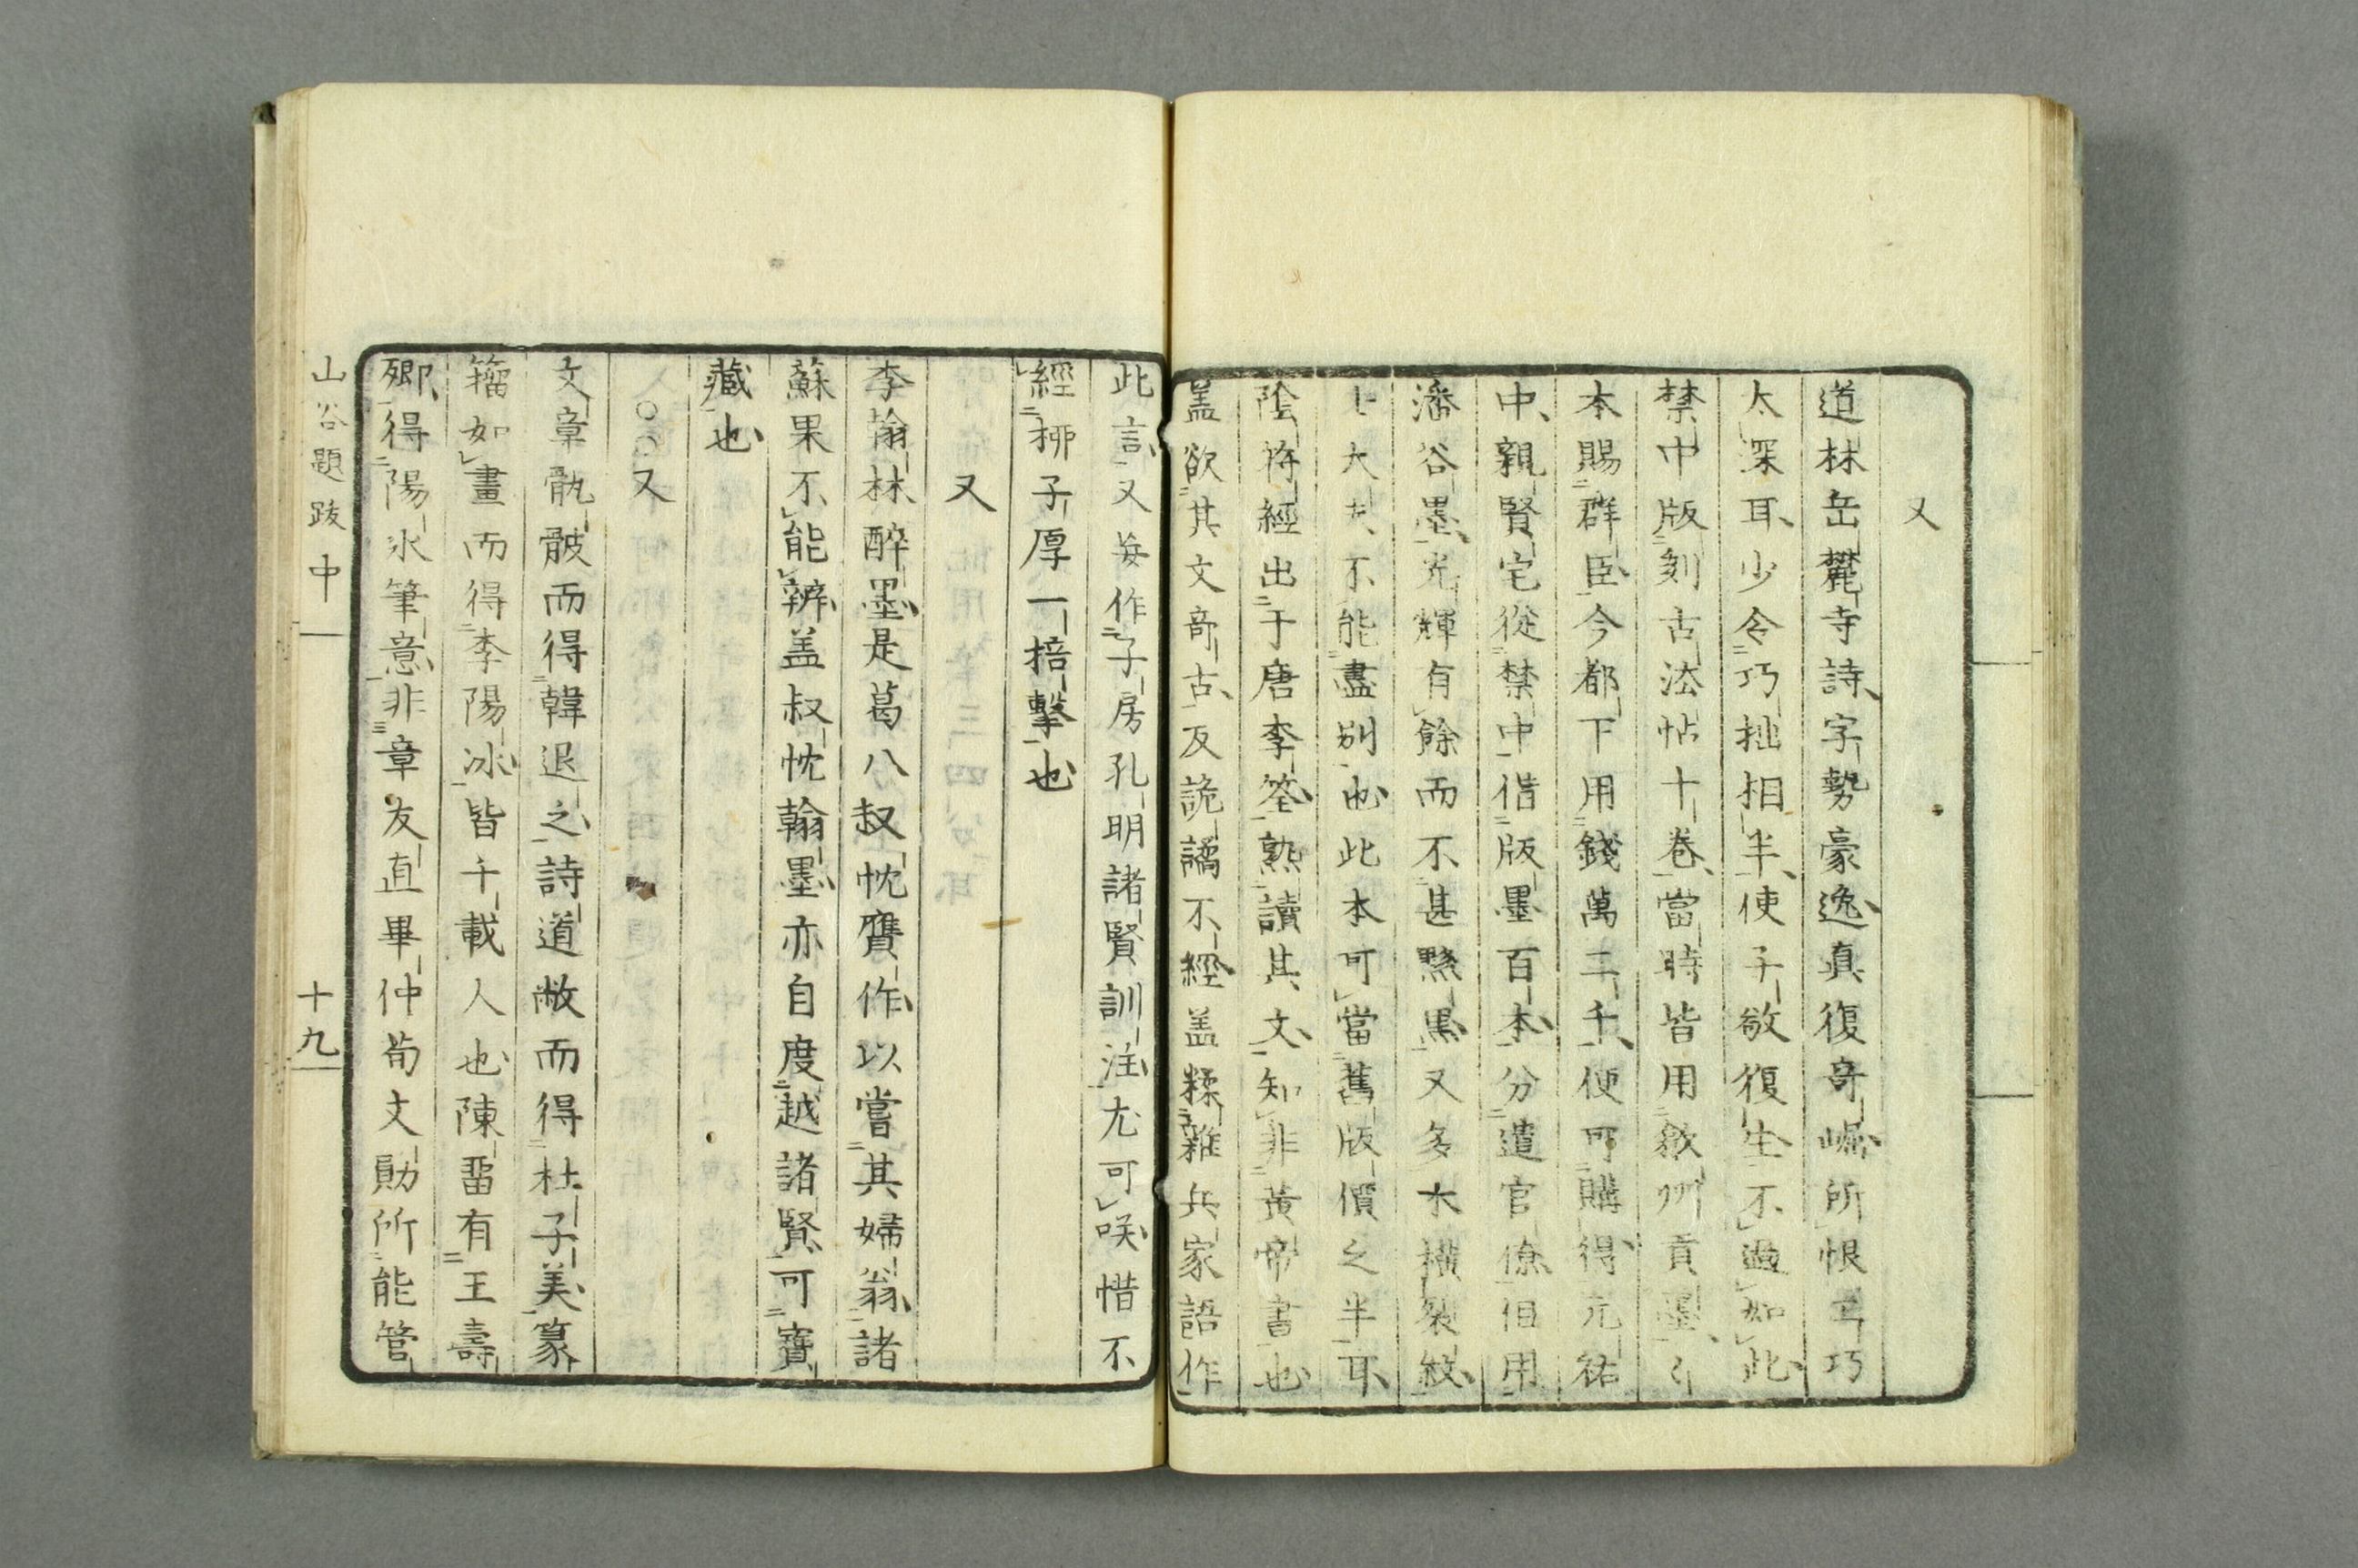 又
道林岳麓寺詩字勢豪逸真復奇崛所恨工巧
太深耳少令巧拙相半使子敬復生不過如此
禁中版刻古法帖十卷當時皆用歙州貢墨墨
本賜群臣今都下用錢萬二千便可購得元祐
中親賢宅從禁中借版墨百本分遣官僚但用
潘谷墨光輝有餘而不甚黟黒又多木橫裂紋
士大夫不能盡別也此本可當舊版價之半耳
陰符經出于唐李筌熟讀其文知非黃帝書也
盖欲其文奇古反詭譎不經盖糅雜兵家語作
此言又妄作子房孔明諸賢訓注尤可咲惜不
經栁子厚一掊擊也
又
李翰林醉墨是葛八叔忱贋作以嘗其婦翁諸
蘇果不能辨盖叔忱翰墨亦自度越諸賢可寶
藏也
○○又
文章骫骳而得韓退之詩道敝而得杜子美篆
籀如畫而得李陽冰皆千載人也陳畱有王壽
卿得陽氷筆意非章友直畢仲荀文勛所能管
山谷題跋中
十九